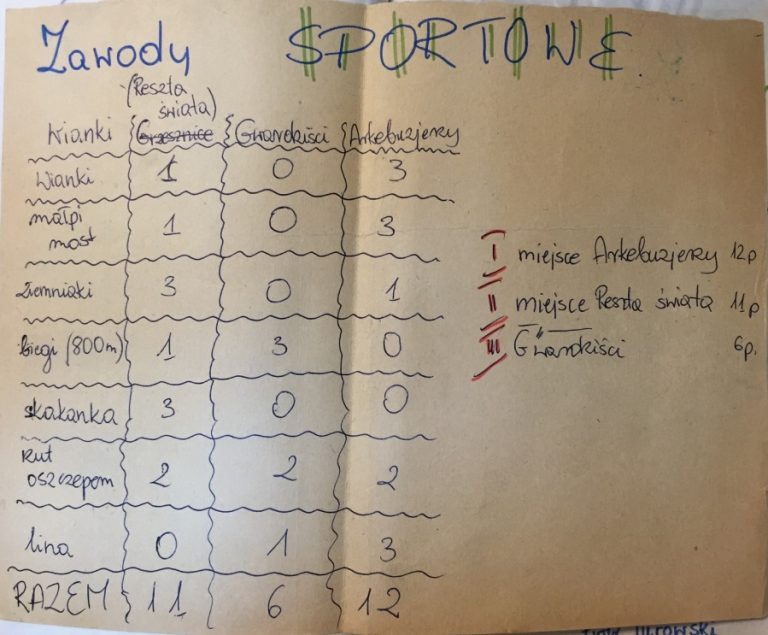 Zawody SPORTOWE.
(Reszta
świata)
Wianki Grzesznice Gwardkiści Arkebuzjerzy
Wianki 1 0 3
małpi
most 1 0 3
Ziemniaki 3 0 1
biegi (800m) 1 3 0
skakanka 3 0 0
Rut
oszczepem 2 2 2
lina 0 1 3
RAZEM 11 6 12
I miejsce Arkebuzjerzy 12p
II miejsce Reszta świata 11p
III — " — Gwardkiści 6p.